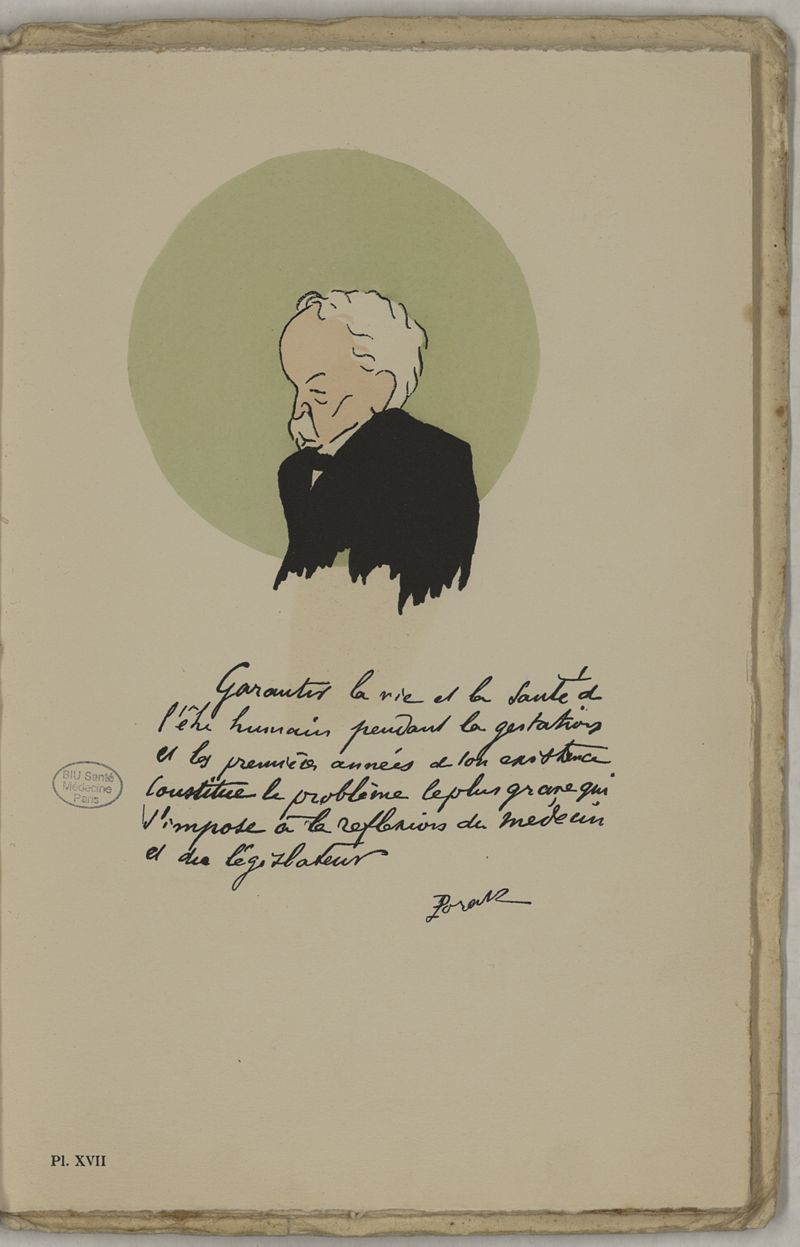 Garantir la vie et la Santé d
l'être humain pendant la gestation
et les premières années de son existence
Constitue le problème le plus grave qui
s'impose à la reflexion du médecin
et du législateur
Porak
BIU Santé
Médecine
Paris
Pl. XVII